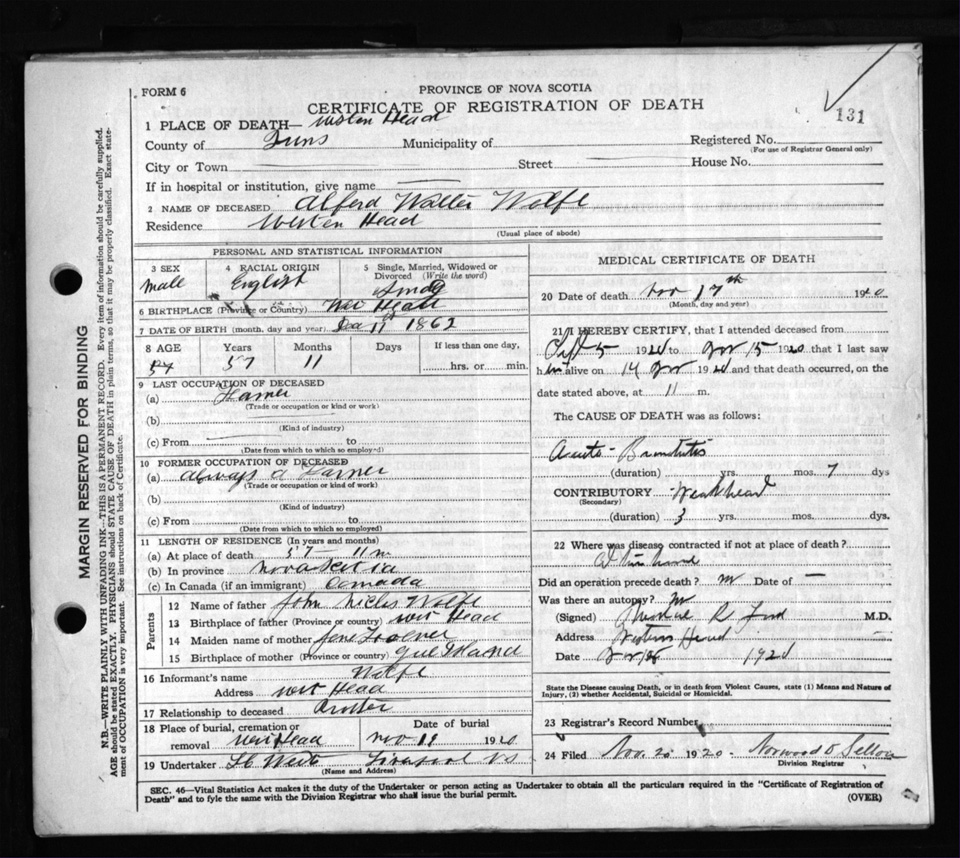 PROVINCE OF NOVA SCOTIA
FORM 6
CERTIFICATE OF REGISTRATION OF DEATH
131
1 PLACE OF DEATH— Western Head
County of Municipality of Registered No.
(For use of Registrar General only)
City or Town Street House No.
If in hospital or institution, give name
2 NAME OF DECEASED Alford Walter Wolfe
Residence Western Head
(Usual place of abode)
PERSONAL AND STATISTICAL INFORMATION
3 SEX 4 RACIAL ORIGIN 5 Single, Married, Widowed or Divorced (Write the word)
Male English
6 BIRTHPLACE (Province or Country) Head
7 DATE OF BIRTH (month, day and year) 11 1862
8 AGE Years Months Days If less than one day,
57 11 hrs. or min.
9 LAST OCCUPATION OF DECEASED
(a) Farmer
(Trade or occupation or kind or work)
(b)
(Kind of industry)
(c) From to
(Date from which to which so employed)
10 FORMER OCCUPATION OF DECEASED
(a) Always a Farmer
(Trade or occupation or kind of work)
(b)
(Kind of industry)
(c) From to
(Date from which to which so employed)
11 LENGTH OF RESIDENCE (In years and months)
(a) At place of death 57 — 11 m
(b) In province Nova Scotia
(c) In Canada (if an immigrant) Canada
Parents
12 Name of father John Wolfe
13 Birthplace of father (Province or country) West Head
14 Maiden name of mother Jene
15 Birthplace of mother (Province or country) Island
16 Informant's name Wolfe
Address West Head
17 Relationship to deceased Brother
18 Place of burial, cremation or removal West Head Date of burial Nov 19 1920
19 Undertaker Liverpool NS
(Name and Address)
MEDICAL CERTIFICATE OF DEATH
20 Date of death Nov 17th 1920
(Month, day and year)
21 I HEREBY CERTIFY, that I attended deceased from
Sept 5 1920 to Nov 15 1920 that I last saw
him alive on 14 Nov 1920 and that death occurred, on the
date stated above, at 11 m.
The CAUSE OF DEATH was as follows:
Acute Bronchitis
(duration) yrs. mos. 7 dys
CONTRIBUTORY Weak heart
(Secondary)
(duration) 3 yrs. mos. dys.
22 Where was disease contracted if not at place of death?
Did an operation precede death? No Date of —
Was there an autopsy? No
(Signed) R Ford M.D.
Address Western Head
Date Nov 18 1920
State the Disease causing Death, or in death from Violent Causes, state (1) Means and Nature of
Injury, (2) whether Accidental, Suicidal or Homicidal.
23 Registrar's Record Number
24 Filed Nov. 20 1920 Norwood
Division Registrar
SEC. 46—Vital Statistics Act makes it the duty of the Undertaker or person acting as Undertaker to obtain all the particulars required in the "Certificate of Registration of
Death" and to fyle the same with the Division Registrar who shall issue the burial permit.
(OVER)
MARGIN RESERVED FOR BINDING
N.B.—WRITE PLAINLY WITH UNFADING INK—THIS IS A PERMANENT RECORD. Every item of information should be carefully supplied.
AGE should be stated EXACTLY. PHYSICIANS should STATE CAUSE OF DEATH in plain terms, so that it may be properly classified. Exact statement of OCCUPATION is very important. See instructions on back of Certificate.